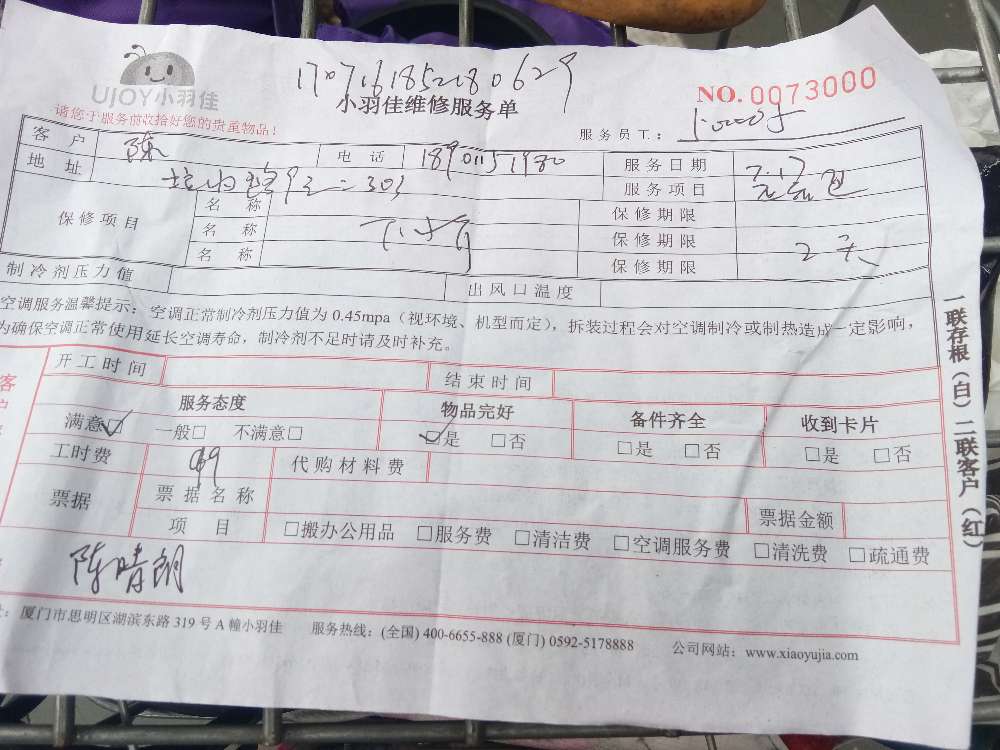 UJOY小羽佳
170716185218 0629
小羽佳维修服务单
NO. 0073000
请您于服务前收拾好您的贵重物品!
服务员工:
客户 陈 电话 18901151980 服务日期 7.17
地址 服务项目
保修项目 名称 保修期限
名称 保修期限 2天
名称 保修期限
制冷剂压力值 出风口温度
空调服务温馨提示:空调正常制冷剂压力值为 0.45mpa(视环境、机型而定),拆装过程会对空调制冷或制热造成一定影响,
为确保空调正常使用延长空调寿命,制冷剂不足时请及时补充。
开工时间 结束时间
服务态度 物品完好 备件齐全 收到卡片
满意☑ 一般□ 不满意□ ☑是 □否 □是 □否 □是 □否
工时费 99 代购材料费
票据 票据名称 票据金额
项目 □搬办公用品 □服务费 □清洁费 □空调服务费 □清洗费 □疏通费
陈晴朗
厦门市思明区湖滨东路 319 号 A 幢小羽佳 服务热线:(全国) 400-6655-888 (厦门) 0592-5178888 公司网站:www.xiaoyujia.com
一联存根(白)二联客户(红)